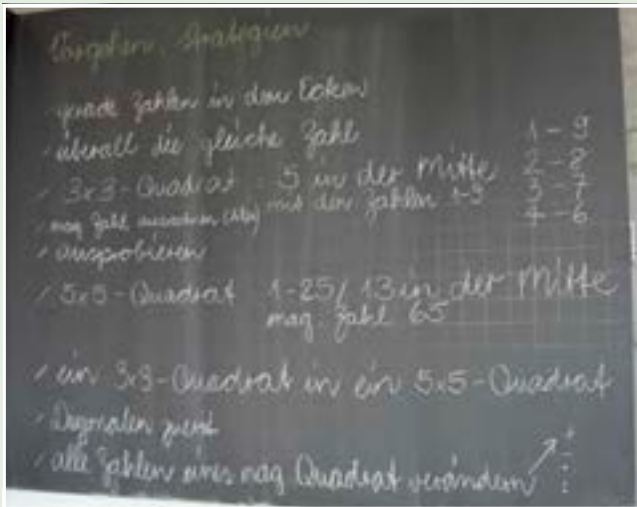 Vorgehen, Strategien
gerade Zahlen in den Ecken
überall die gleiche Zahl
3x3-Quadrat : 5 in der Mitte
mit den Zahlen 1-9
1-9
2-8
3-7
4-6
mag Zahl
ausprobieren
5x5-Quadrat 1-25/ 13 in der Mitte
mag. Zahl 65
ein 3x3-Quadrat in ein 5x5-Quadrat
Diagonalen zuerst
alle Zahlen eines mag Quadrat verändern